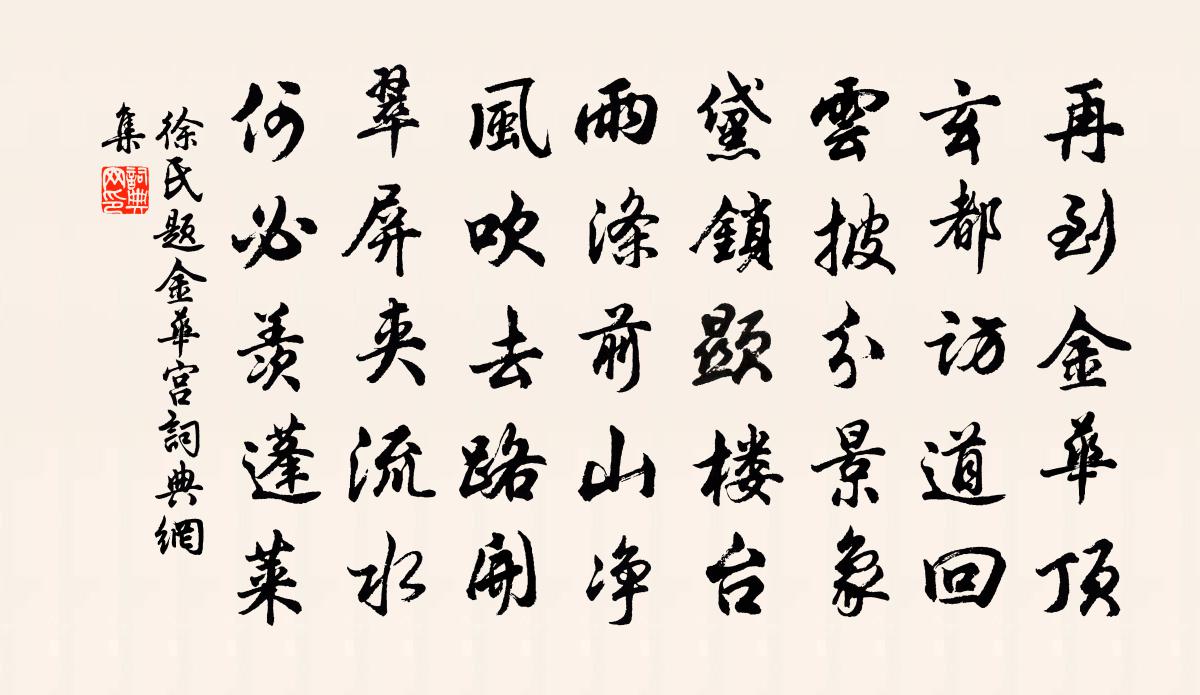 再到金華頂
玄都訪道回
雲披分景象
黛鎖顯楼台
雨滌前山净
風吹去路開
翠屏夾流水
何必羨蓬莱
徐氏题金華宫詞典網
集
詞典
网印